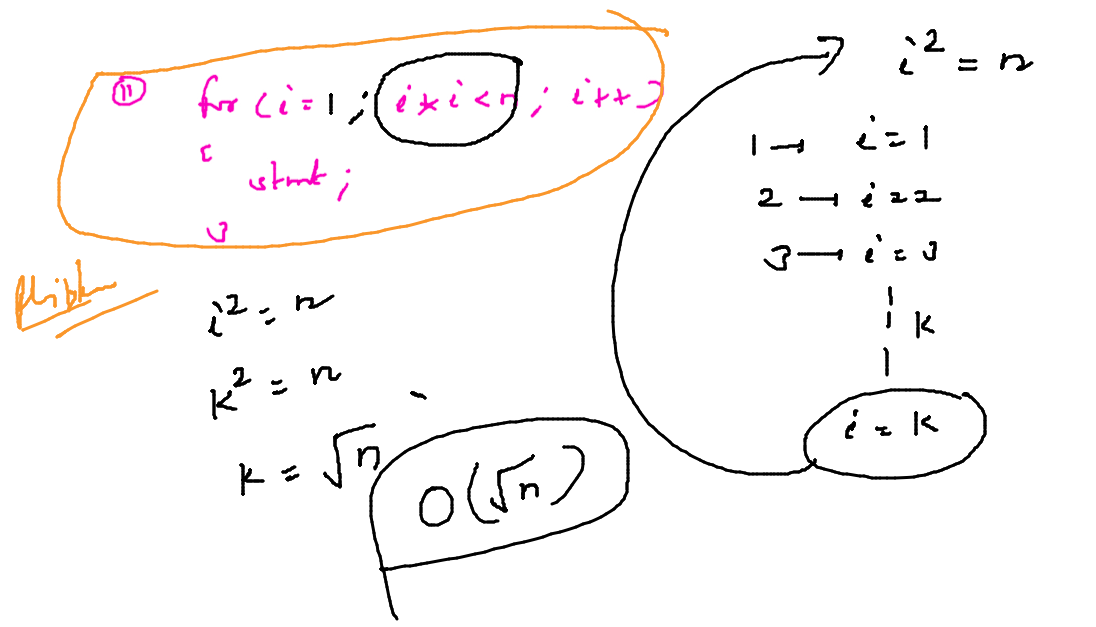 ⑪ for (i = 1 ; i * i < n ; i++)
{
stmt ;
}
Problem
i² = n
k² = n
k = √n
O(√n)
i² = n
1 → i = 1
2 → i = 2
3 → i = 3
k
i = k